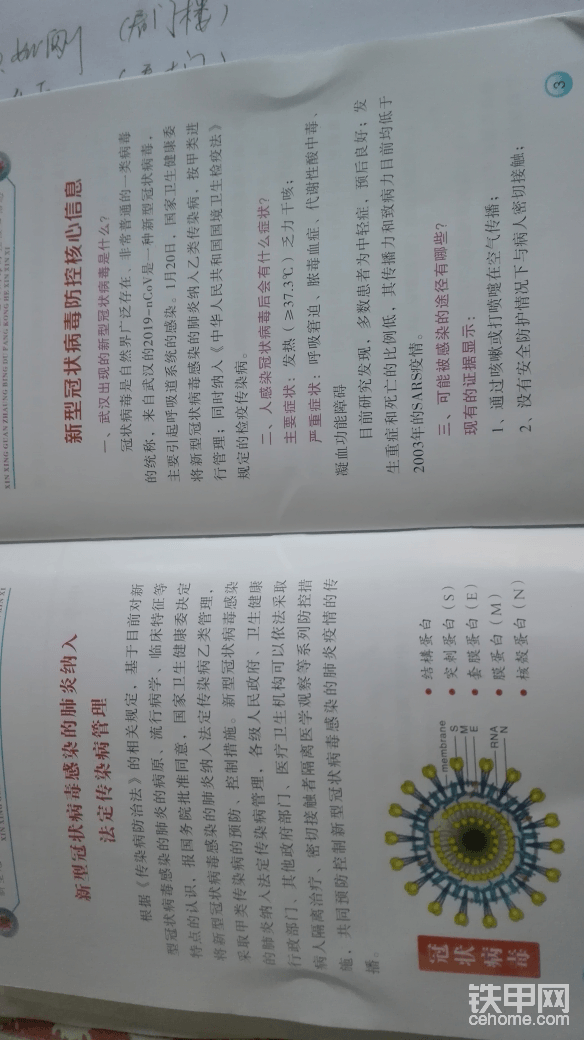 新型冠状病毒感染的肺炎纳入
法定传染病管理
根据《传染病防治法》的相关规定，基于目前对新
型冠状病毒感染的肺炎的病原、流行病学、临床特征等
特点的认识，报国务院批准同意，国家卫生健康委决定
将新型冠状病毒感染的肺炎纳入法定传染病乙类管理，
采取甲类传染病的预防、控制措施。新型冠状病毒感染
的肺炎纳入法定传染病管理，各级人民政府、卫生健康
行政部门、其他政府部门、医疗卫生机构可以依法采取
病人隔离治疗、密切接触者隔离医学观察等系列防控措
施，共同预防控制新型冠状病毒感染的肺炎疫情的传
播。
冠状病毒
membrane
S
M
E
RNA
N
• 结構蛋白
• 突刺蛋白（S）
• 套膜蛋白（E）
• 膜蛋白（M）
• 核殻蛋白（N）
XIN XING GUAN ZHAUNG BING DU FANG KONG HE XIN XIN XI
新型冠状病毒防控核心信息
一、武汉出现的新型冠状病毒是什么？
冠状病毒是自然界广泛存在、非常普通的一类病毒
的统称，来自武汉的2019-nCoV是一种新型冠状病毒，
主要引起呼吸道系统的感染。1月20日，国家卫生健康委
将新型冠状病毒感染的肺炎纳入乙类传染病，按甲类进
行管理；同时纳入《中华人民共和国国境卫生检疫法》
规定的检疫传染病。
二、人感染冠状病毒后会有什么症状？
主要症状：发热（≥37.3℃）乏力干咳；
严重症状：呼吸窘迫、脓毒血症、代谢性酸中毒、
凝血功能障碍
目前研究发现，多数患者为中轻症，预后良好；发
生重症和死亡的比例低，其传播力和致病力目前均低于
2003年的SARS疫情。
三、可能被感染的途径有哪些？
现有的证据显示：
1、通过咳嗽或打喷嚏在空气传播；
2、没有安全防护情况下与病人密切接触；
3
铁甲网
cehome.com